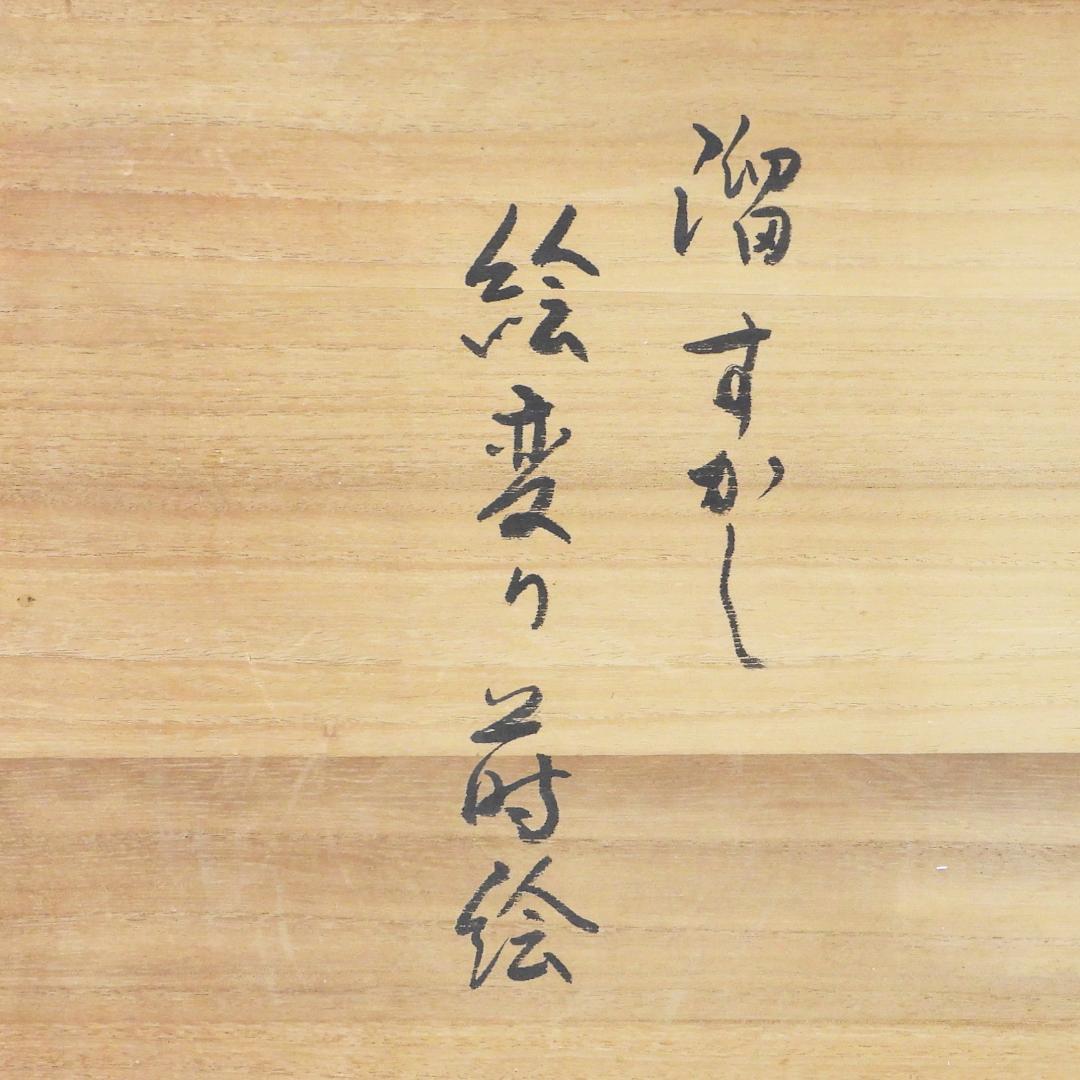 溜すかし
絵変り蒔絵